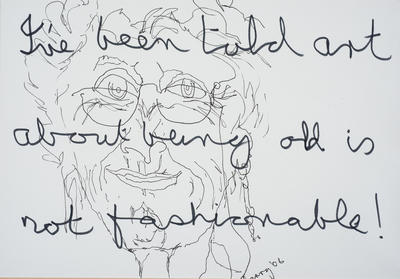 I've been told art
about being old is
not fashionable!
'06